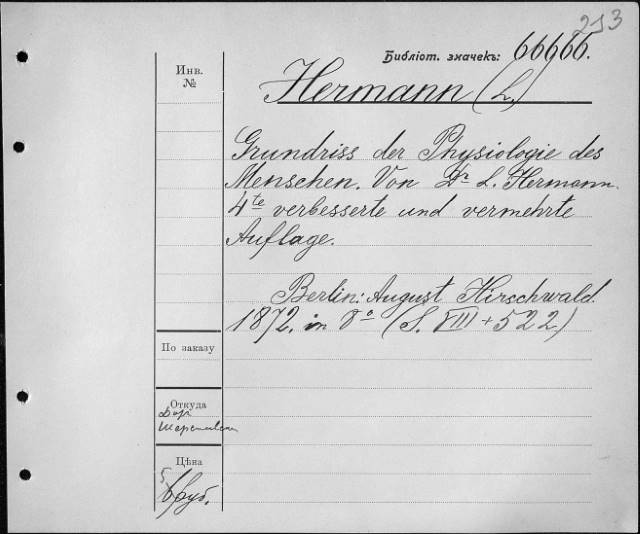 233
Библіот. значекъ: 66666.
Инв.
№
Hermann (L.)
Grundriss der Physiologie des
Menschen. Von Dr L. Hermann.
4te verbesserte und vermehrte
Auflage.
Berlin: August Hirschwald.
1872. in 8o (S. VIII + 522.)
По заказу
Откуда
Дар
Цѣна
руб.